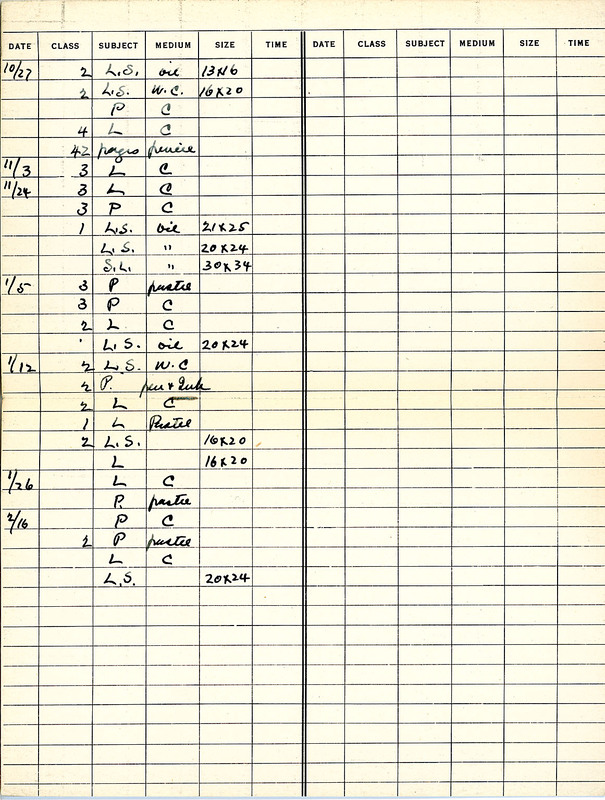 DATE CLASS SUBJECT MEDIUM SIZE TIME DATE CLASS SUBJECT MEDIUM SIZE TIME
10/27 2 L.S. oil 13x16
2 L.S. W.C. 16x20
P C
4 L C
42 pages
11/3 3 L C
11/24 3 L C
3 P C
1 L.S. oil 21x25
L.S. " 20x24
S.L. " 30x34
1/5 3 P pastel
3 P C
2 L C
' L.S. oil 20x24
1/12 2 L.S. W.C
2 P. pen & Ink
2 L C
1 L Pastel
2 L.S. 16x20
L 16x20
1/26 L C
P. pastel
2/16 P C
2 P pastel
L C
L.S. 20x24